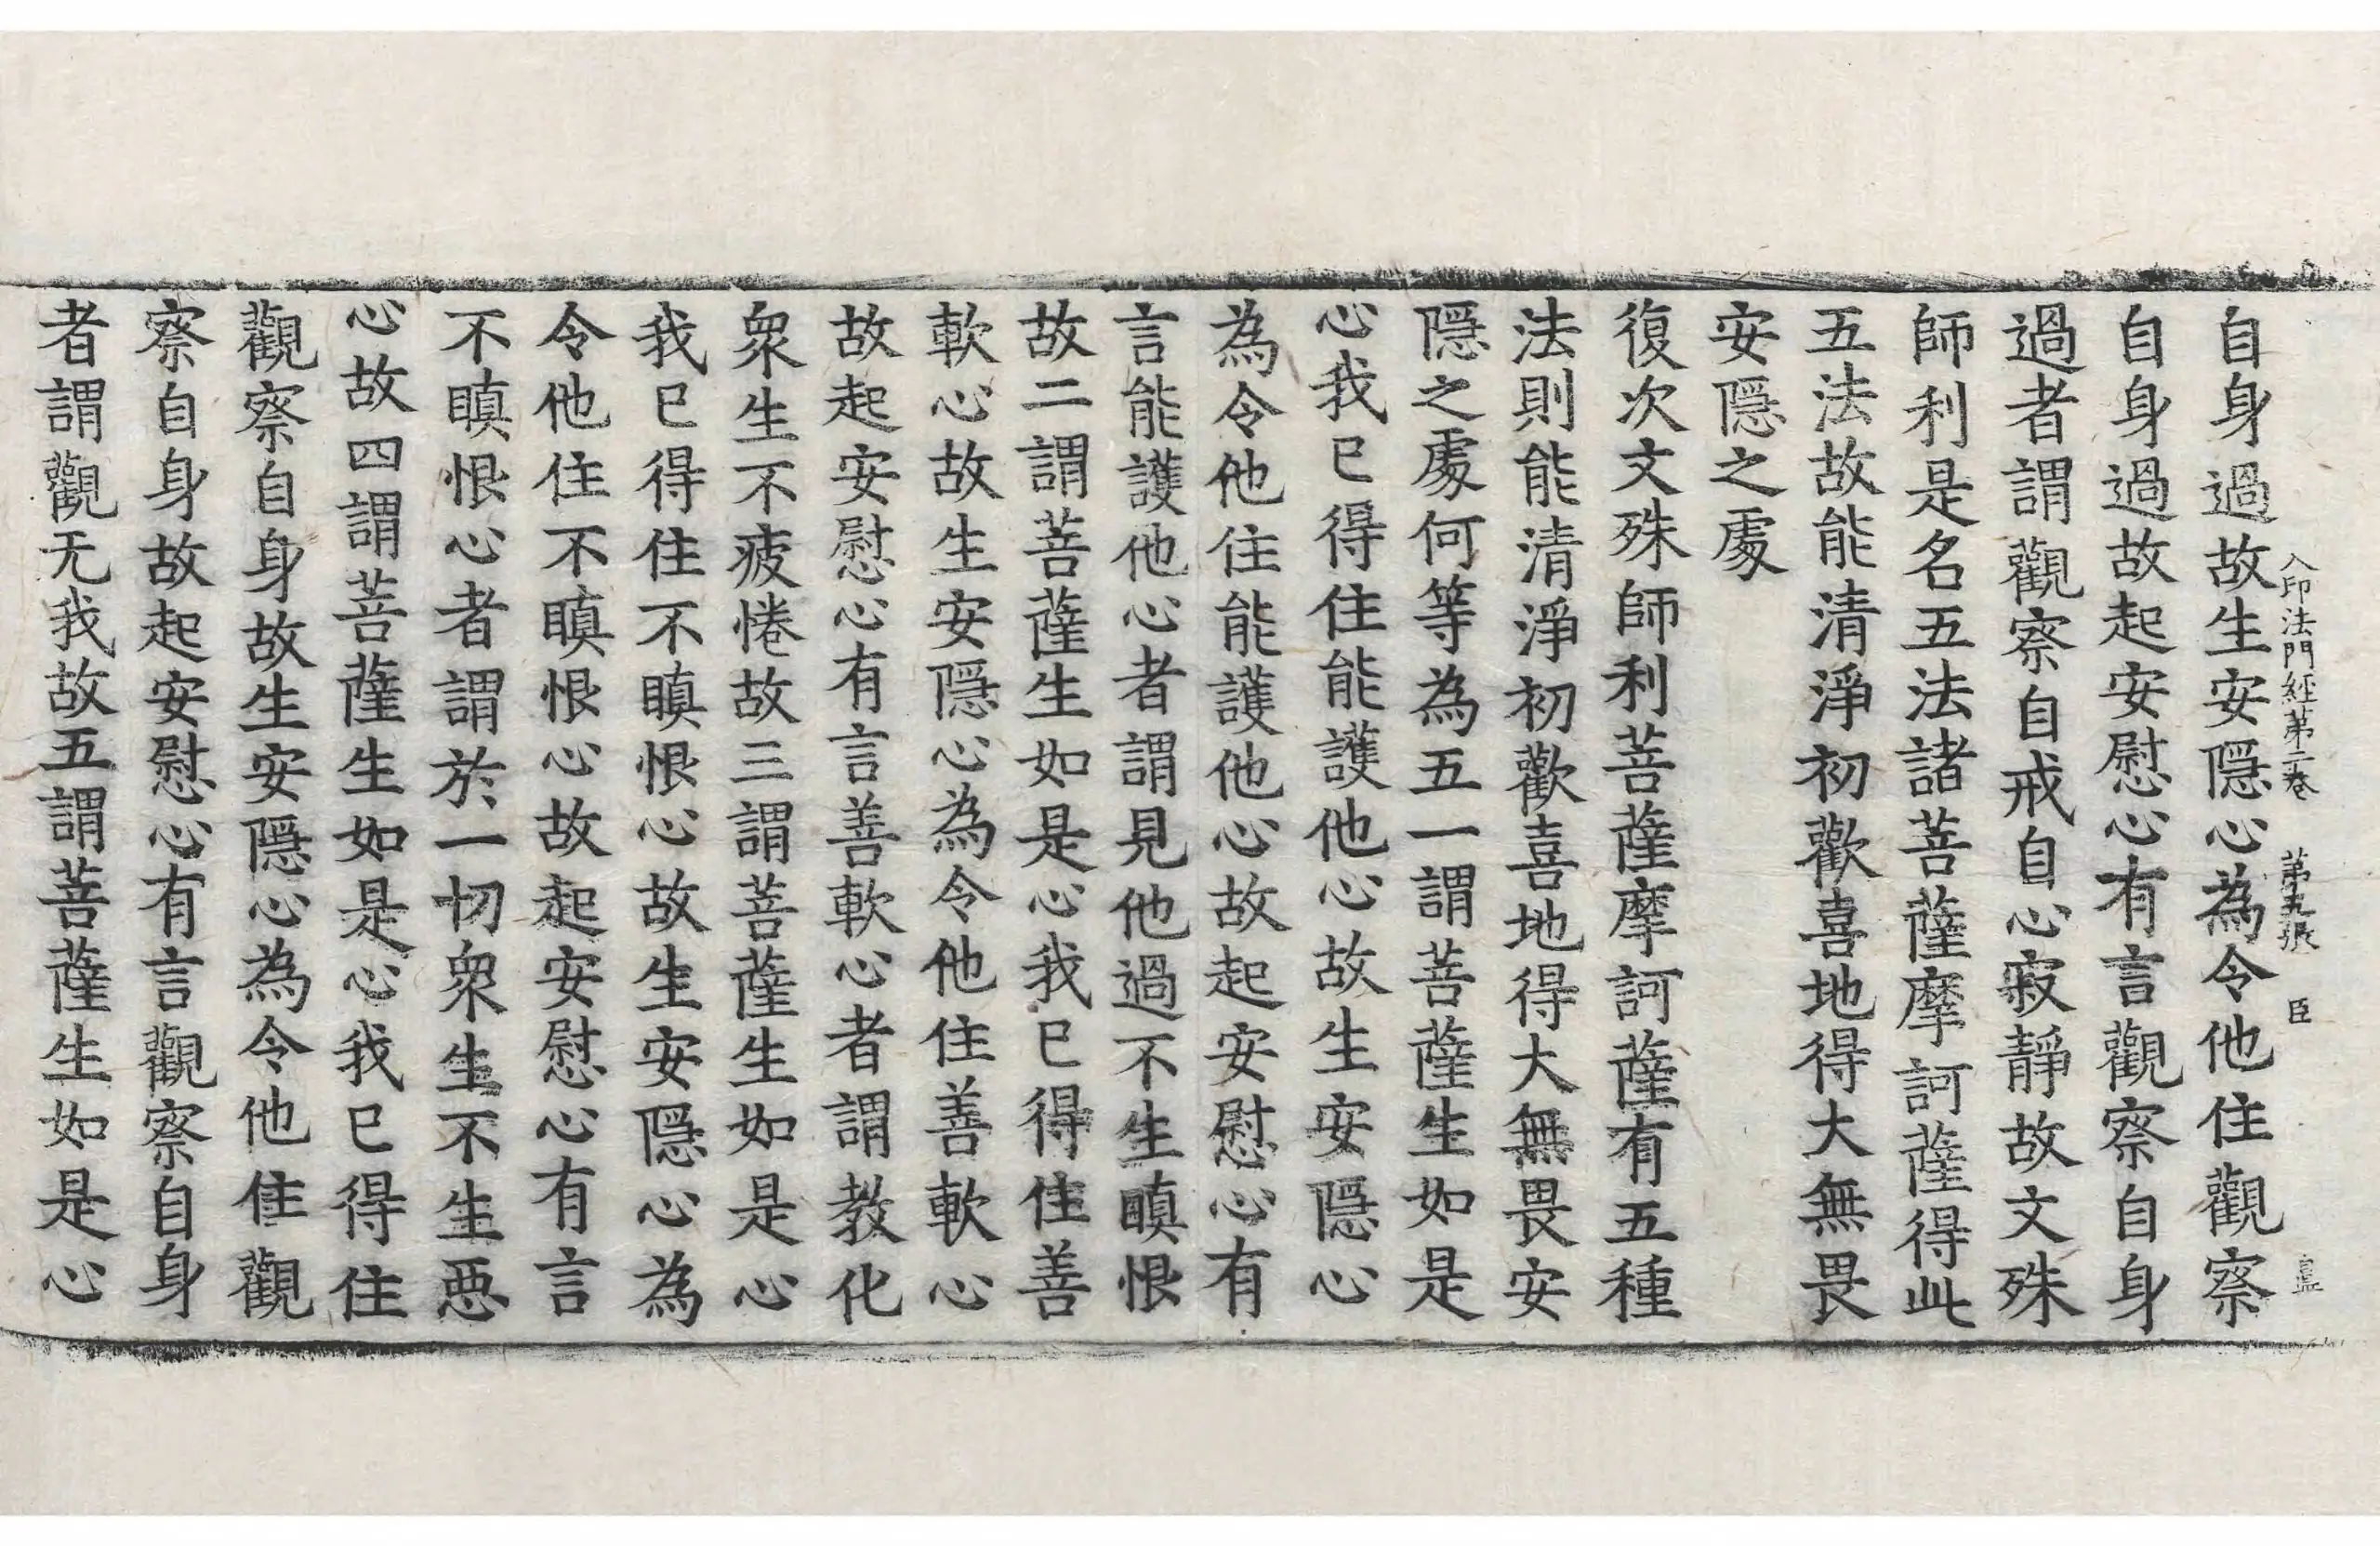 入印法門經第二卷 第五張 臣
自身過故生安隱心為令他住觀察
自身過故起安慰心有言觀察自身
過者謂觀察自戒自心寂靜故文殊
師利是名五法諸菩薩摩訶薩得此
五法故能清淨初歡喜地得大無畏
安隱之處
復次文殊師利菩薩摩訶薩有五種
法則能清淨初歡喜地得大無畏安
隱之處何等為五一謂菩薩生如是
心我已得住能護他心故生安隱心
為令他住能護他心故起安慰心有
言能護他心者謂見他過不生瞋恨
故二謂菩薩生如是心我已得住善
軟心故生安隱心為令他住善軟心
故起安慰心有言善軟心者謂教化
衆生不疲惓故三謂菩薩生如是心
我已得住不瞋恨心故生安隱心為
令他住不瞋恨心故起安慰心有言
不瞋恨心者謂於一切衆生不生惡
心故四謂菩薩生如是心我已得住
觀察自身故生安隱心為令他住觀
察自身故起安慰心有言觀察自身
者謂觀无我故五謂菩薩生如是心